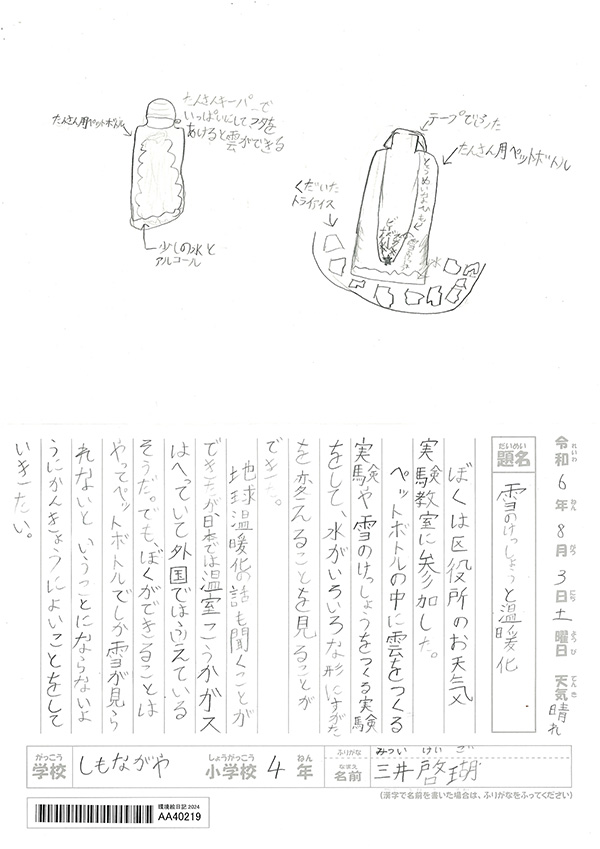 たんさんキーパーで
いっぱいにしてフタを
あけると雲ができる
たんさん用ペットボトル
少しの水と
アルコール
テープでとめた
たんさん用ペットボトル
くだいた
ドライアイス
水
れいわ ねん がつ にち ようび てんき
令和6年8月3日土曜日 天気 晴れ
だいめい
題名
雪のけっしょうと温暖化
ぼくは区役所のお天気
実験教室に参加した。
ペットボトルの中に雲をつくる
実験や雪のけっしょうをつくる実験
をして、水がいろいろな形にすがた
を変えることを見ることが
できた。
地球温暖化の話も聞くことが
できたが、日本では温室こうかガス
はへっていて外国ではふえている
そうだ。でも、ぼくができることは
やってペットボトルでしか雪が見ら
れないということにならないよ
うにかんきょうによいことをして
いきたい。
がっこう しょうがっこう ねん
学校 しもながや 小学校 4年
ふりがな みつい けいご
なまえ
名前 三井啓瑚
(漢字で名前を書いた場合は、ふりがなをふってください)
環境絵日記2024
AA40219